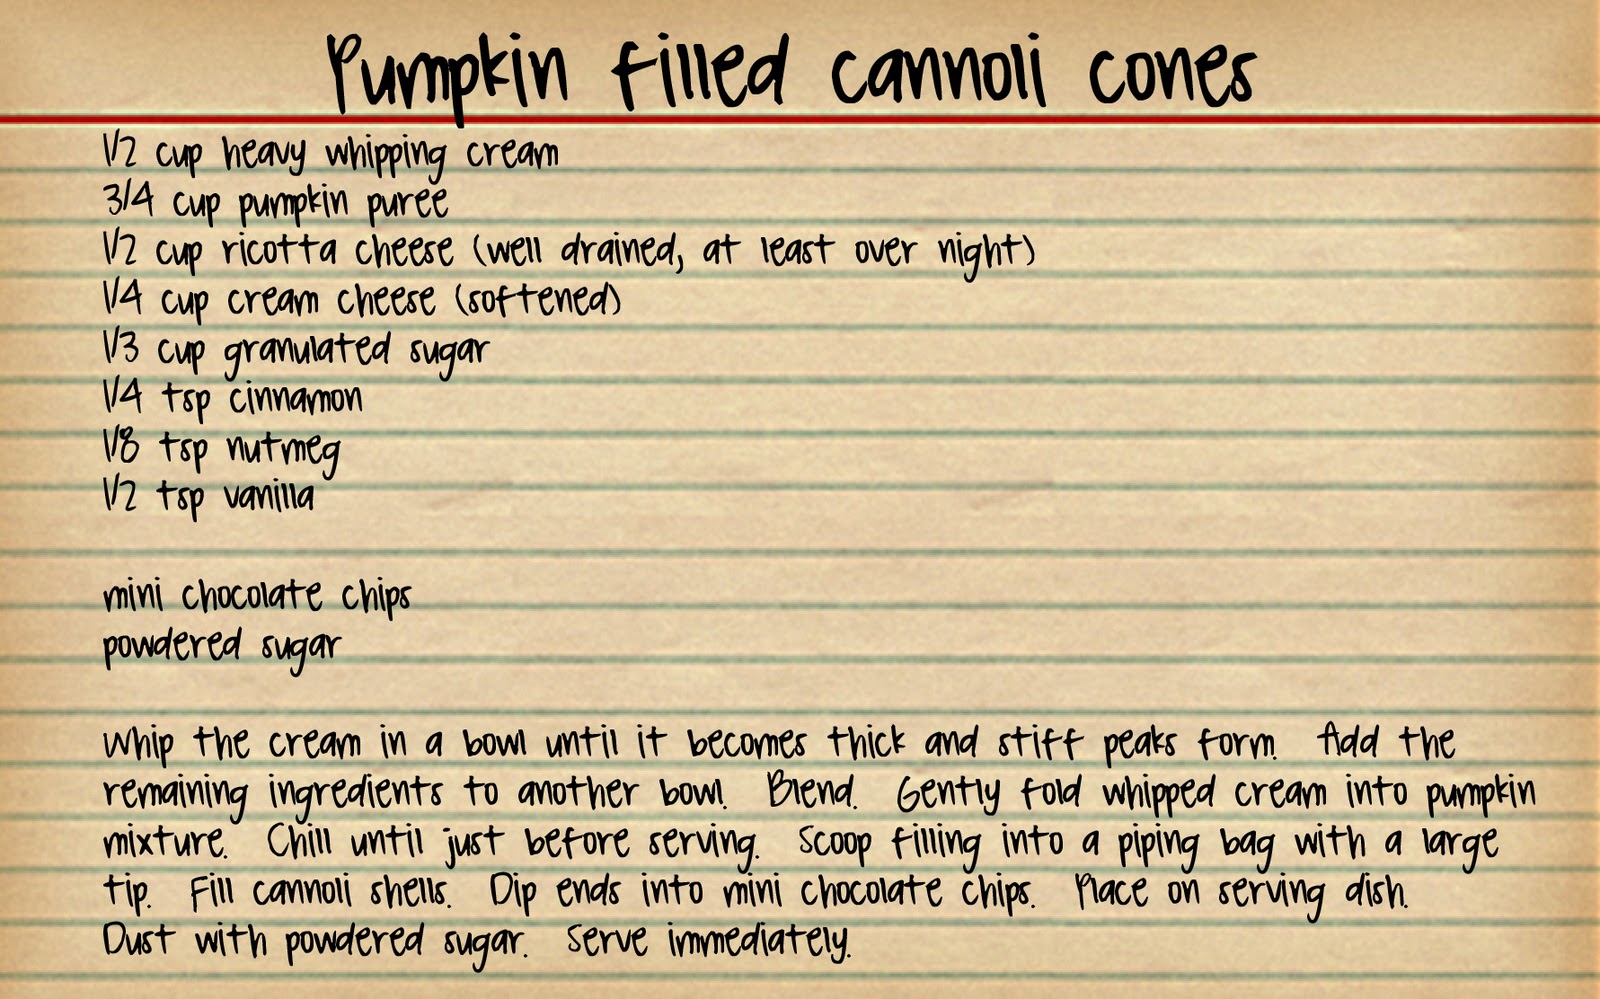 Pumpkin filled cannoli cones
1/2 cup heavy whipping cream
3/4 cup pumpkin puree
1/2 cup ricotta cheese (well drained, at least over night)
1/4 cup cream cheese (softened)
1/3 cup granulated sugar
1/4 tsp cinnamon
1/8 tsp nutmeg
1/2 tsp vanilla
mini chocolate chips
powdered sugar
Whip the cream in a bowl until it becomes thick and stiff peaks form. Add the
remaining ingredients to another bowl. Blend. Gently fold whipped cream into pumpkin
mixture. Chill until just before serving. Scoop filling into a piping bag with a large
tip. Fill cannoli shells. Dip ends into mini chocolate chips. Place on serving dish.
Dust with powdered sugar. Serve immediately.